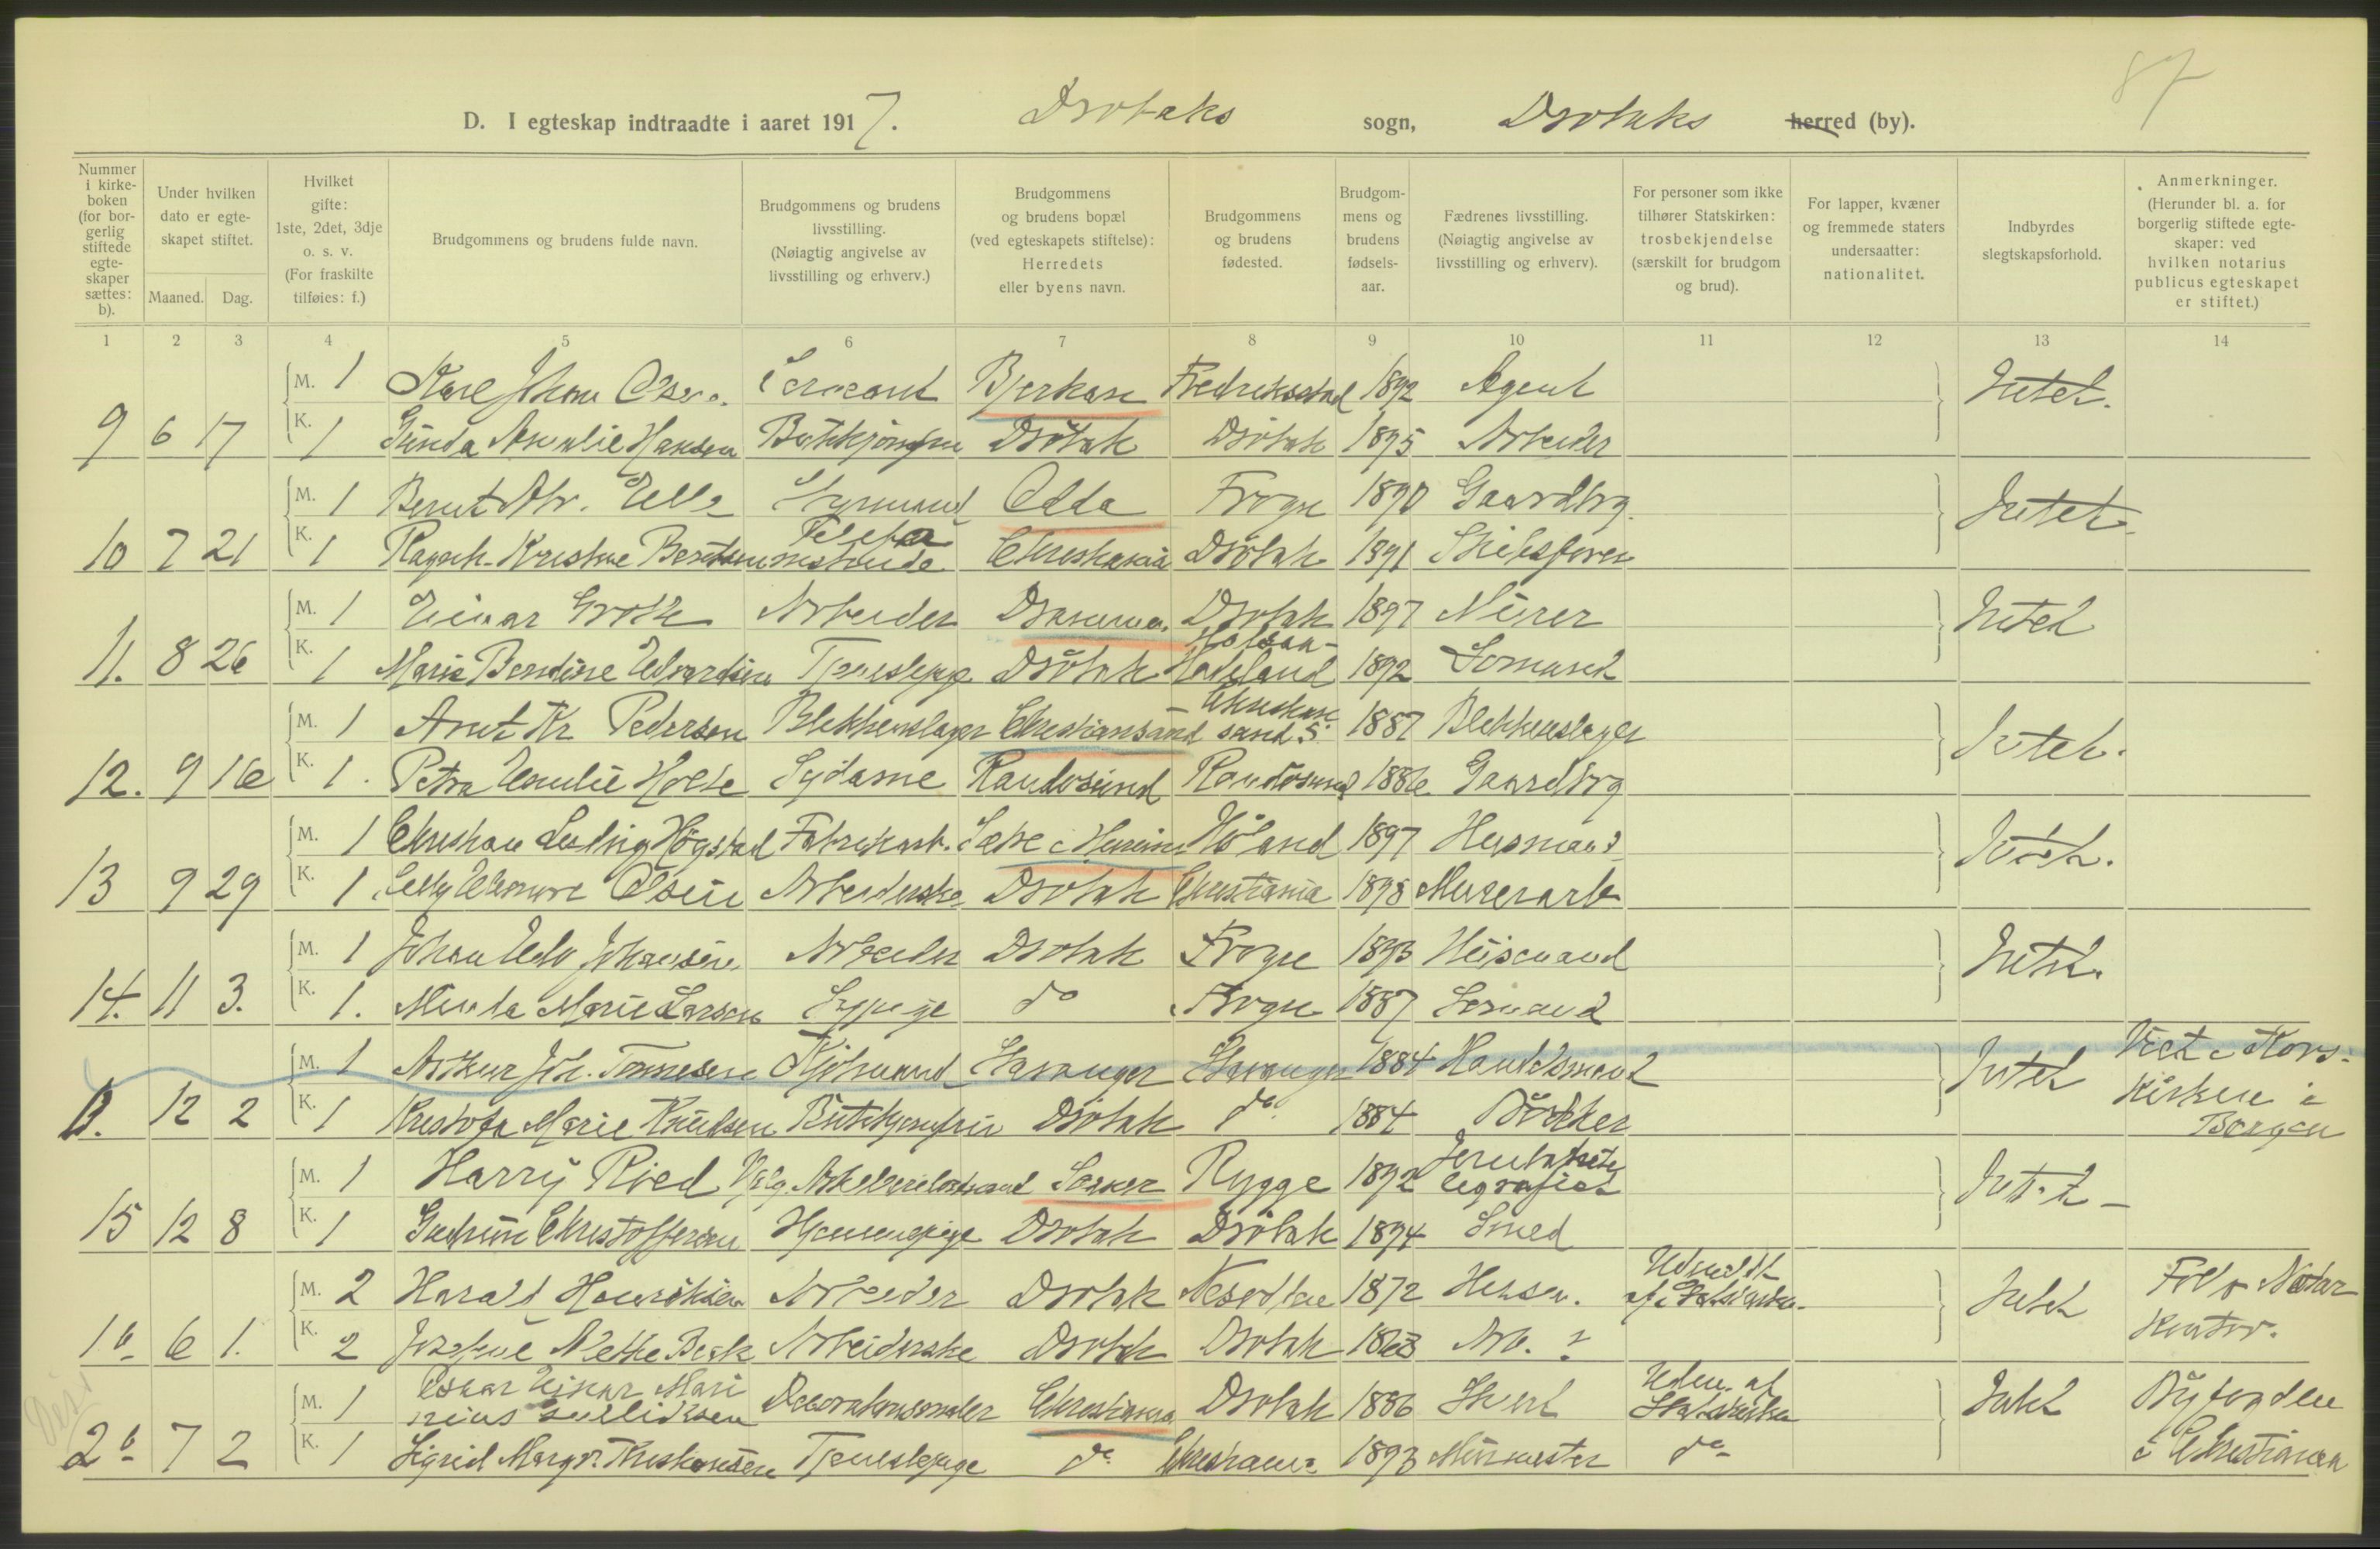 87
D. I egteskap indtraadte i aaret 1917. Drøbaks sogn, Drøbaks herred (by).
Nummer i kirkeboken (for borgerlig stiftede egteskaper sættes: b).
Under hvilken dato er egteskapet stiftet.
Maaned. Dag.
Hvilket gifte: 1ste, 2det, 3dje o. s. v. (For fraskilte tilføies: f.)
Brudgommens og brudens fulde navn.
Brudgommens og brudens livsstilling. (Nøiagtig angivelse av livsstilling og erhverv.)
Brudgommens og brudens bopæl (ved egteskapets stiftelse): Herredets eller byens navn.
Brudgommens og brudens fødested.
Brudgommens og brudens fødselsaar.
Fædrenes livsstilling. (Nøiagtig angivelse av livsstilling og erhverv).
For personer som ikke tilhører Statskirken: trosbekjendelse (særskilt for brudgom og brud).
For lapper, kvæner og fremmede staters undersaatter: nationalitet.
Indbyrdes slegtskapsforhold.
Anmerkninger. (Herunder bl. a. for borgerlig stiftede egteskaper: ved hvilken notarius publicus egteskapet er stiftet.)
1 2 3 4 5 6 7 8 9 10 11 12 13 14
M. 1 Karl Johan Olsen. Sergeant Fredriksstad 1892 Agent Intet.
9 6 17 K. 1 Gunda Amalie Hansen Butikjomfru Drøbak Drøbak 1895 Arbeider
M. 1 Bernt Styrmand Odda Frogn 1890 Gaardbrg. Intet.
10 7 21 K. 1 Ragnh. Kristine Berntsen Christiania Drøbak 1891 Skibsfører
M. 1 Einar Groth Arbeider Drammen. Drøbak 1897 Murer Intet
11. 8 26 K. 1 Marie Bendine Edvardsen Tjenestepige Drøbak 1892 Sømand
M. 1 Arnt Kr Pedersen Blikkenslager Christiansand Christiansand S. 1887 Blikkenslager Intet.
12. 9 16 K. 1. Petra Emilie Holte Sydame Randøsund Randøsund 1886 Gaardbrg
M. 1 Christian Ludvig Høgstad Fabrikarb. Sætre i Hurum Høland 1897 Husmand Intet.
13 9 29 K. 1 Olsen Arbeiderske Drøbak Christiania 1898 Murerarb
M. 1 Johan Johansen Arbeider Drøbak Frogn 1893 Husmand Intet.
14. 11 3. K. 1. Minda Marie Larsen Sypige do Frogn 1887 Sømand
M. 1 Arthur Joh. Tønnesen Kjøbmand Stavanger Stavanger 1884 Handelsmand Intet Viet i Korskirken i Bergen
B. 12 2 K. 1 Kristofa Marie Knudsen Butikjomfru Drøbak do. 1884 Bødker
M. 1 Harry Ried Asker Rygge 1892 Intet
15 12 8 K. 1 Gudrun Christoffersen Hjemmepige Drøbak Drøbak 1894 Smed
M. 2 Harald Henriksen Arbeider Drøbak Nesodden 1872 Udmeldt af Statskirken. Intet Follo Notar Kontor.
1b 6 1. K. 2 Josefine Nette Beck Arbeiderske Drøbak Drøbak 1863 Arb. ?
M. 1 Oskar Einar Marinius Gulliksen Dekorationsmaler Christiania Drøbak 1886 Udm. af Statskirken Intet Byfogden i Christiania
2b 7 2 K. 1 Sigrid Margr. Kristiansen Tjenestepige do Christiania 1893 Murmester do